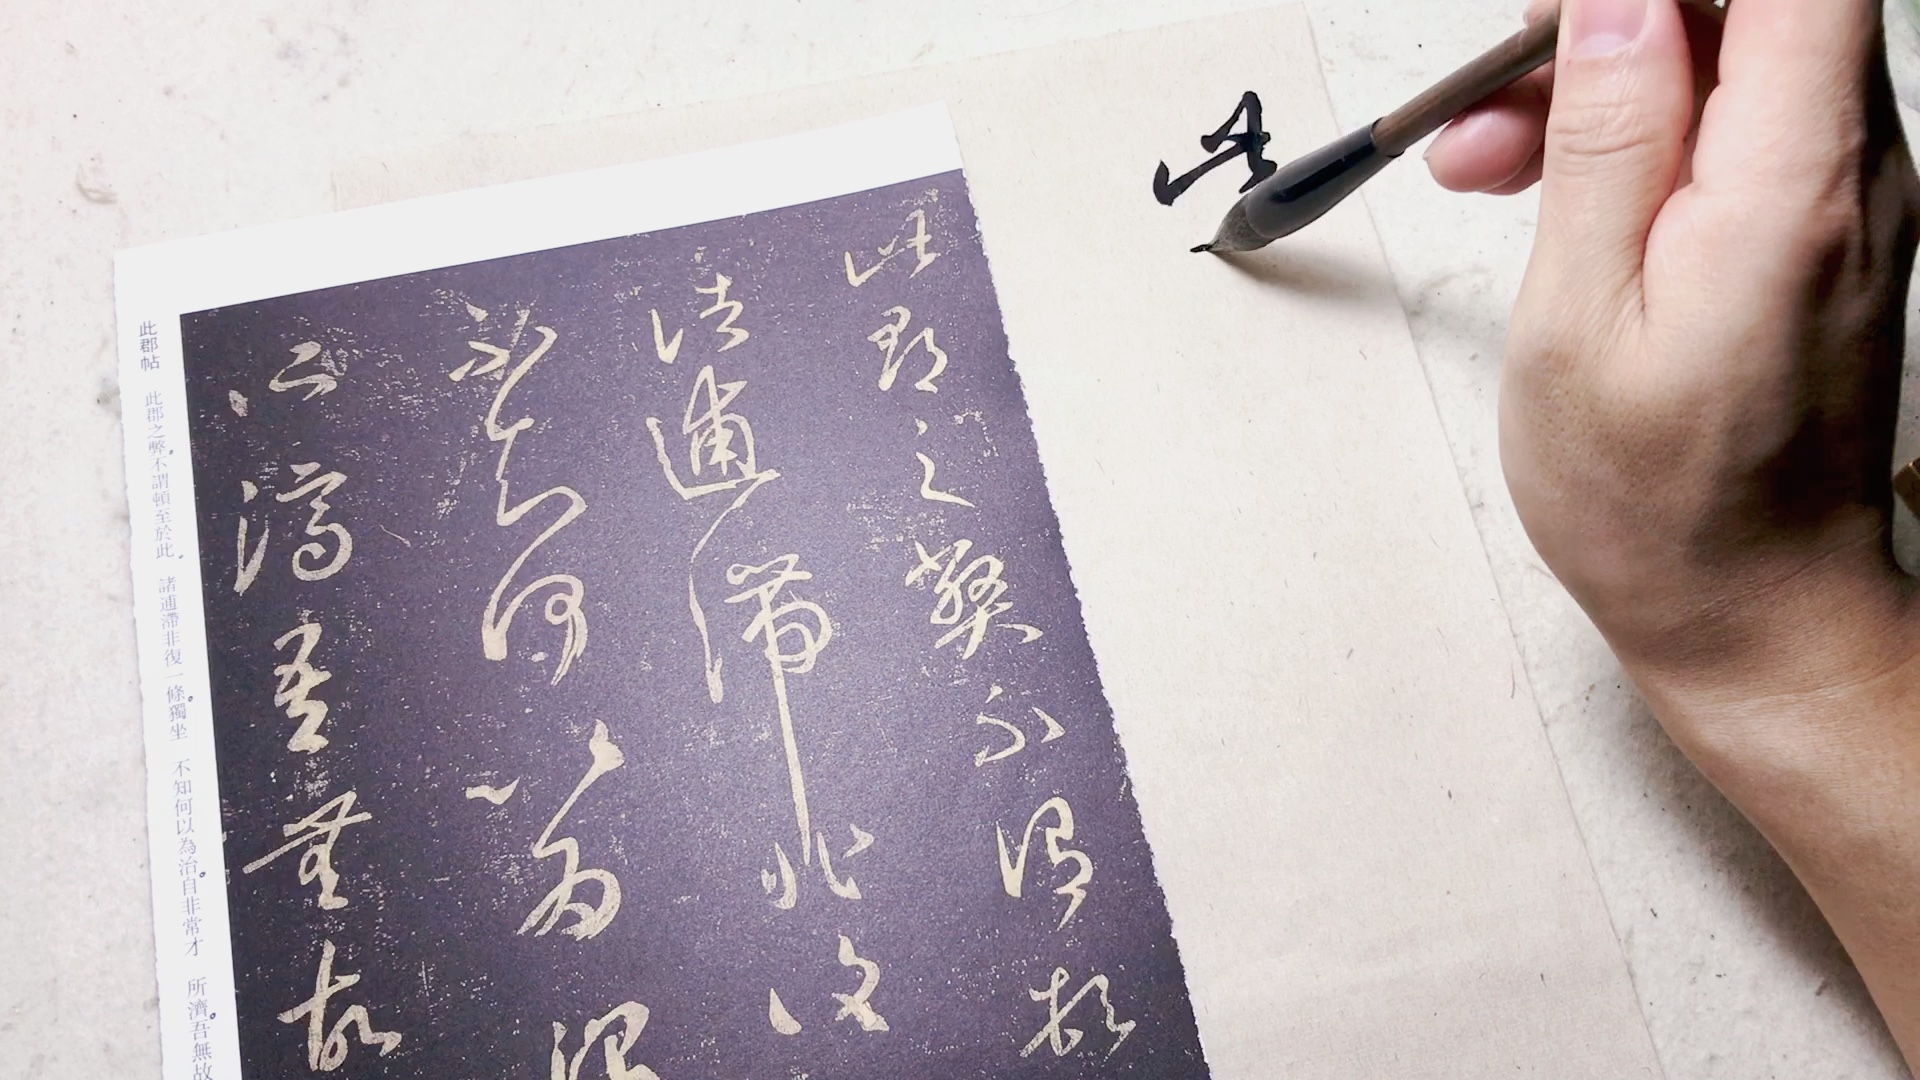 此
此郡之弊不謂頓
諸逋滯非復
不知何以為治
所濟吾無故
此郡帖 此郡之弊。不謂頓至於此。 諸逋滯非復一條。獨坐 不知何以為治。自非常才 所濟。吾無故